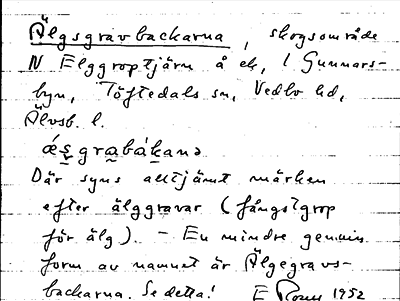 Älgsgravbackarna, skogsområde
N Elggroptjärn å ek, l Gunnars-
byn, Töftedals sn, Vedbo hd,
Älvsb. l.
ǽs̨grabákanə
Där syns alltjämt märken
efter älggravar (fångstgrop
för älg). – En mindre genuin
form av namnet är Älgegravs-
backarna. Se detta! E 1952